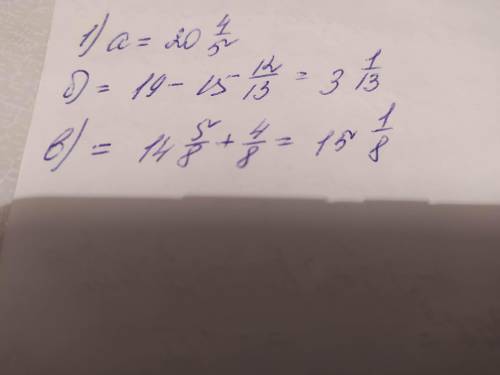 1) a = 20 4/5
б) = 19 - 15 12/13 = 3 1/13
в) = 14 5/8 + 4/8 = 15 1/8